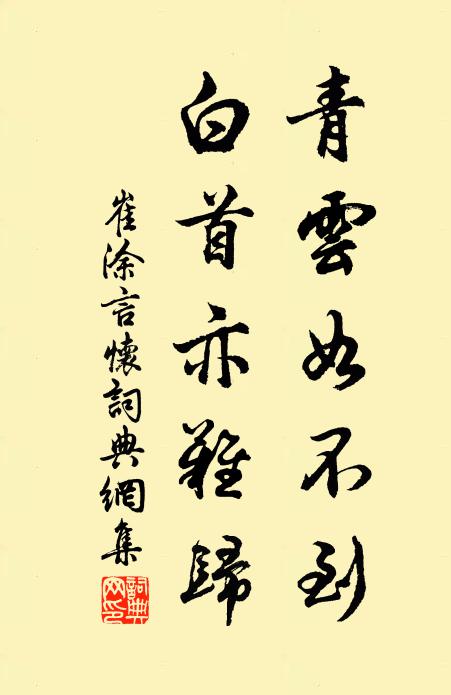 青雲如不到
白首亦難歸
崔涂言懷詞典網集
詞典网印